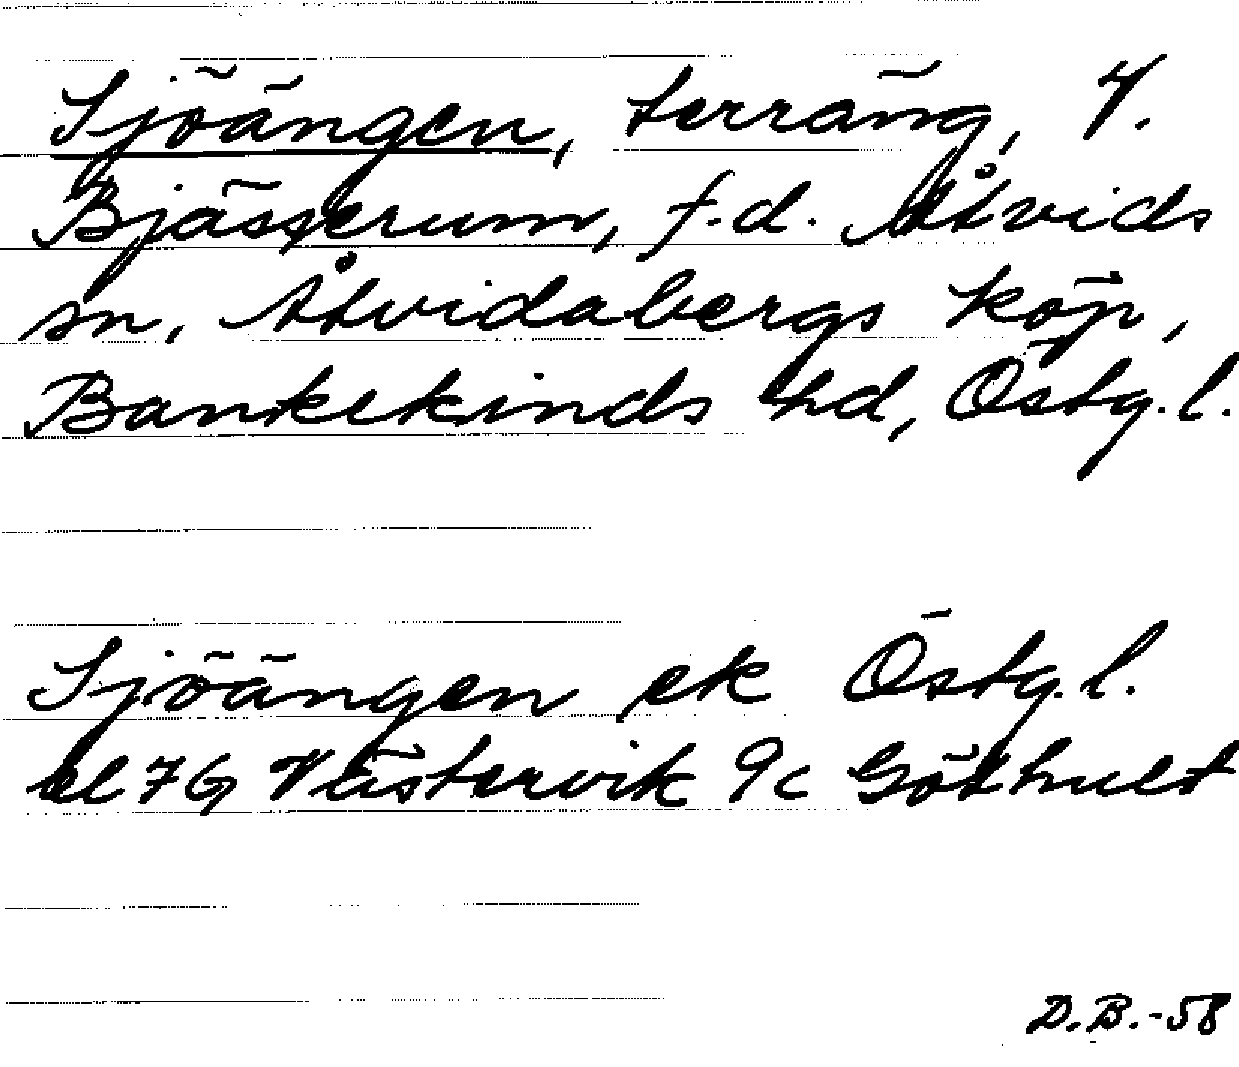 Sjöängen, terräng, V.
Bjässerum, f.d. Åtvids
sn, Åtvidabergs köp,
Bankekinds hd, Östg.l.
Sjöängen ek Östg.l.
bl 7G Västervik 9c Göthult
D.B.-58